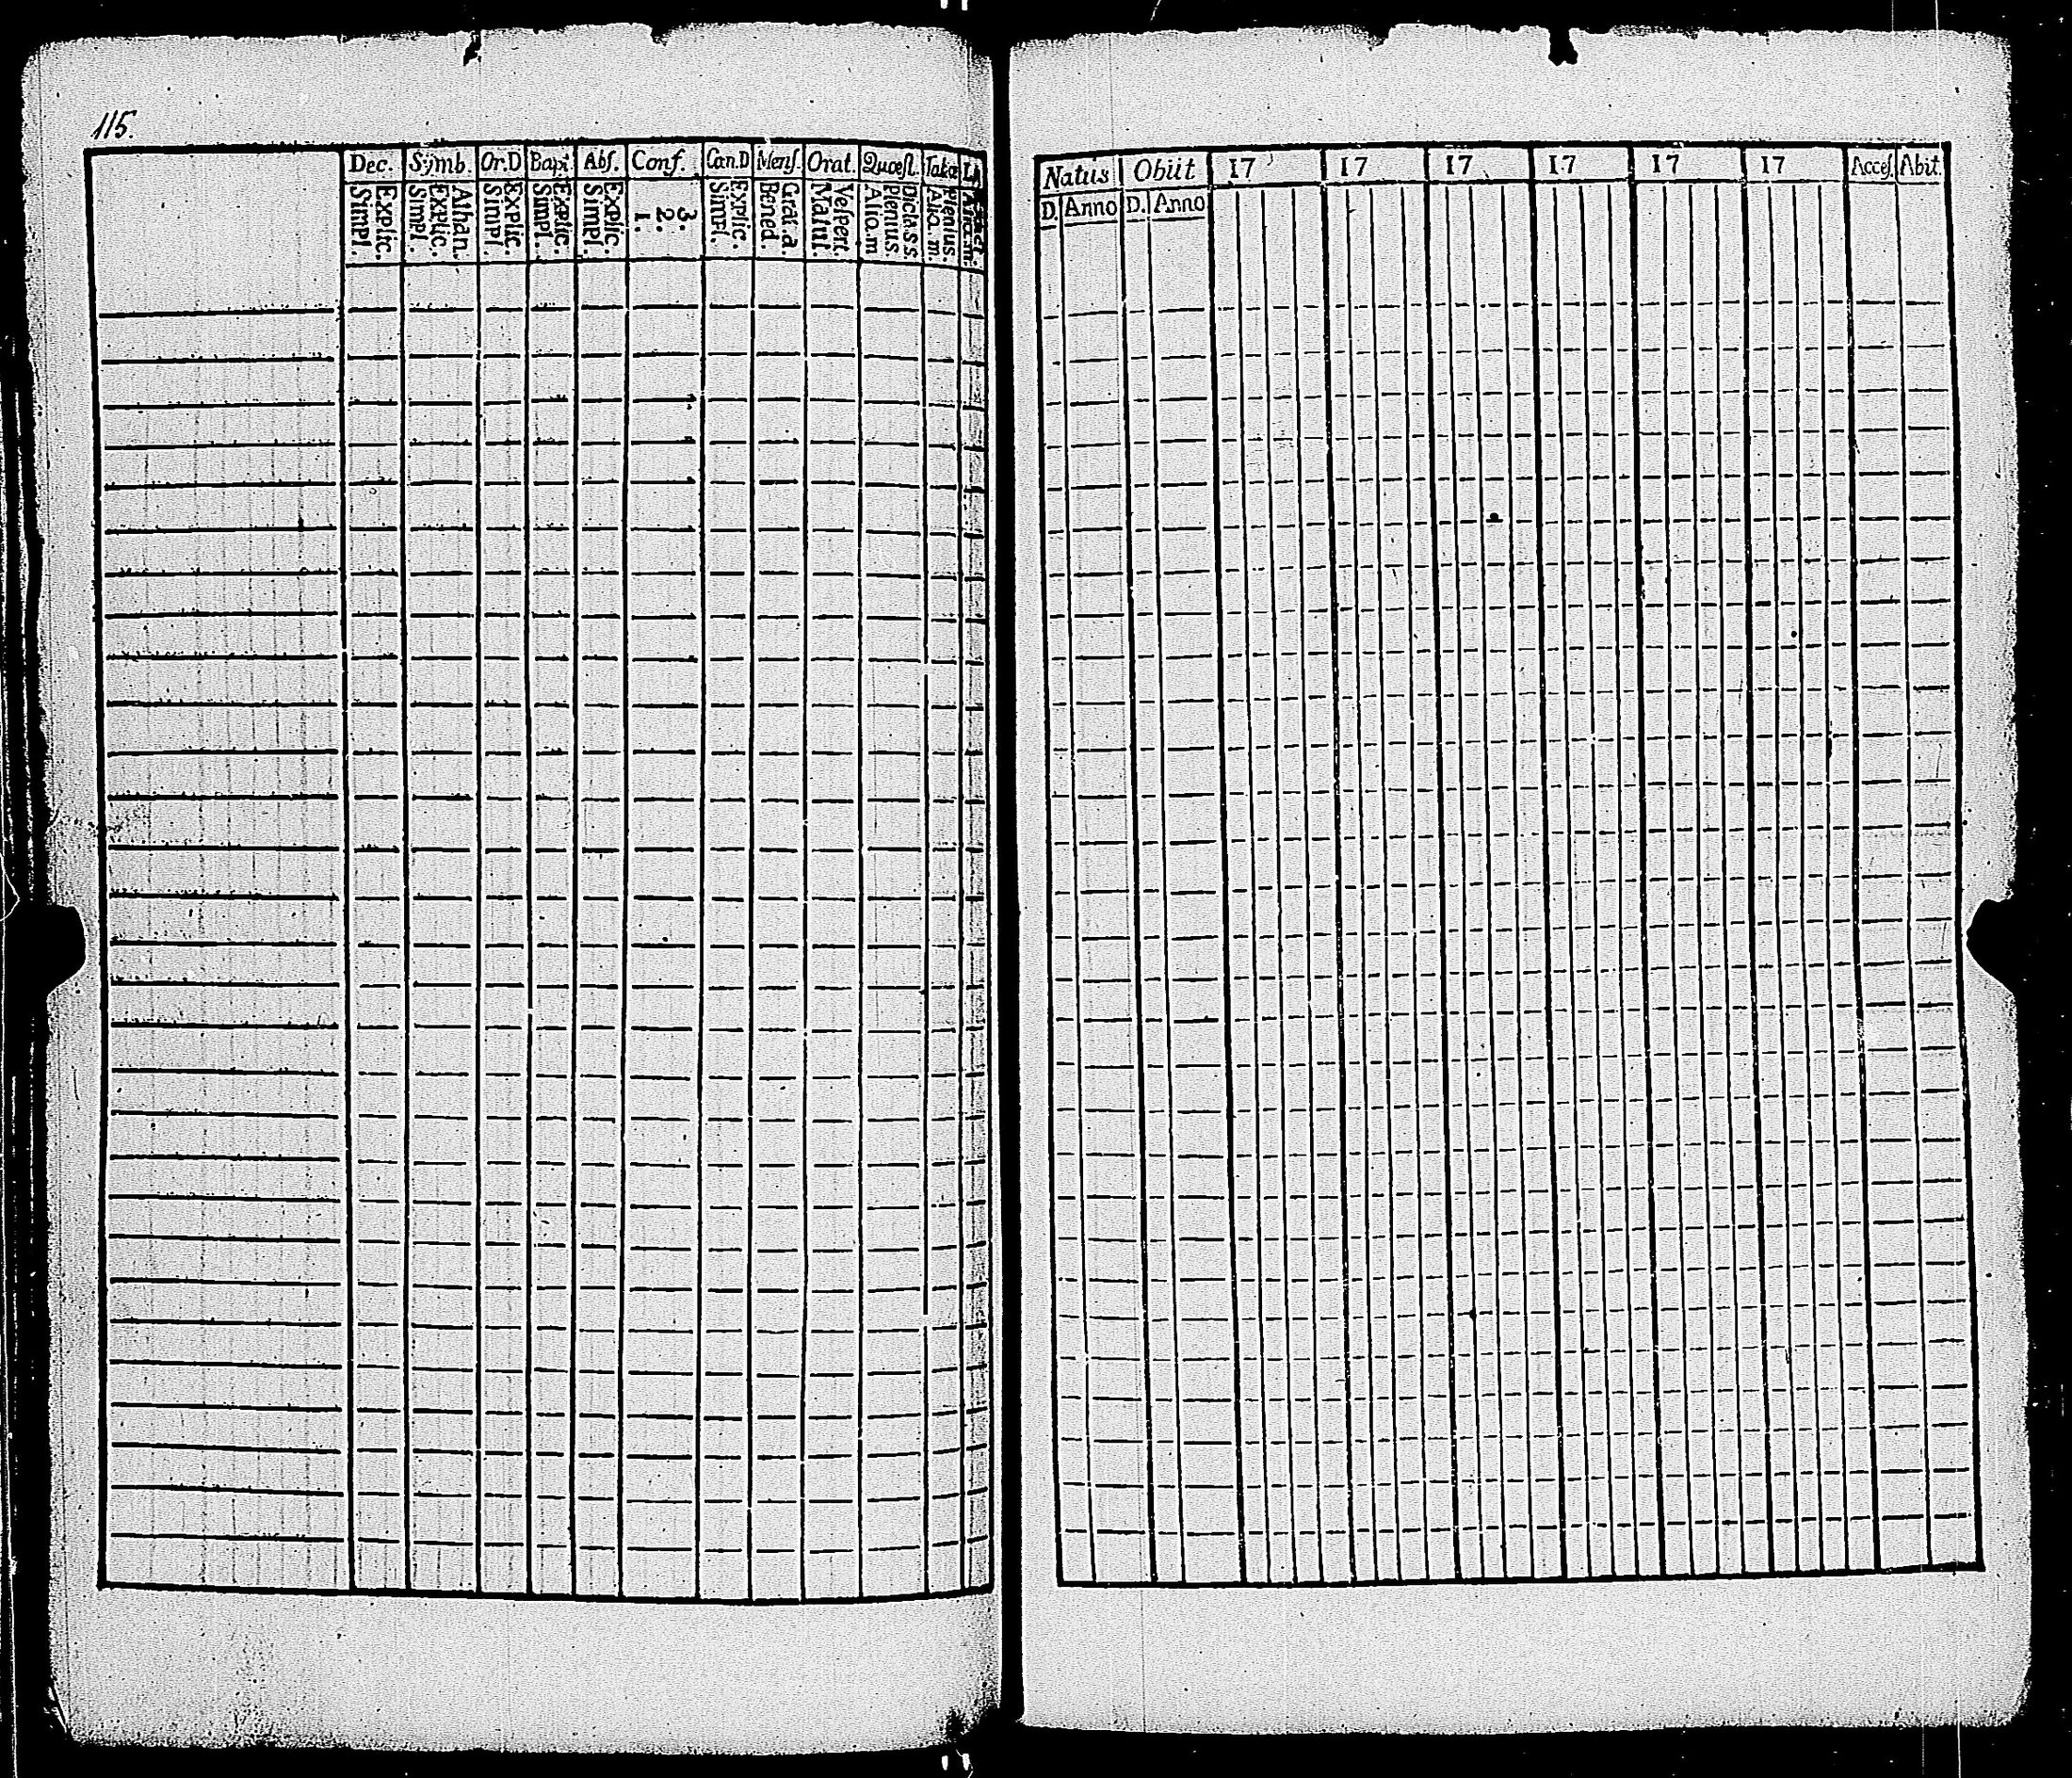 115.
Dec. Symb. Or.D Bapt. Abſ. Conf. Can.D Menſ. Orat. Quœſt. Tabœ
Explic. Simpl.
Athan. Explic. Simpl.
Explic. Simpl.
Explic. Simpl.
Explic. Simpl.
3. 2. 1.
Explic. Simpl.
Grat.a. Bened.
Veſpert. Matut.
Dicta.S.S. Plenius. Aliq.m
Plenius. Aliq.m.
Natus Obiit 17 17 17 17 17 17 Acceſ. Abit.
D. Anno D. Anno